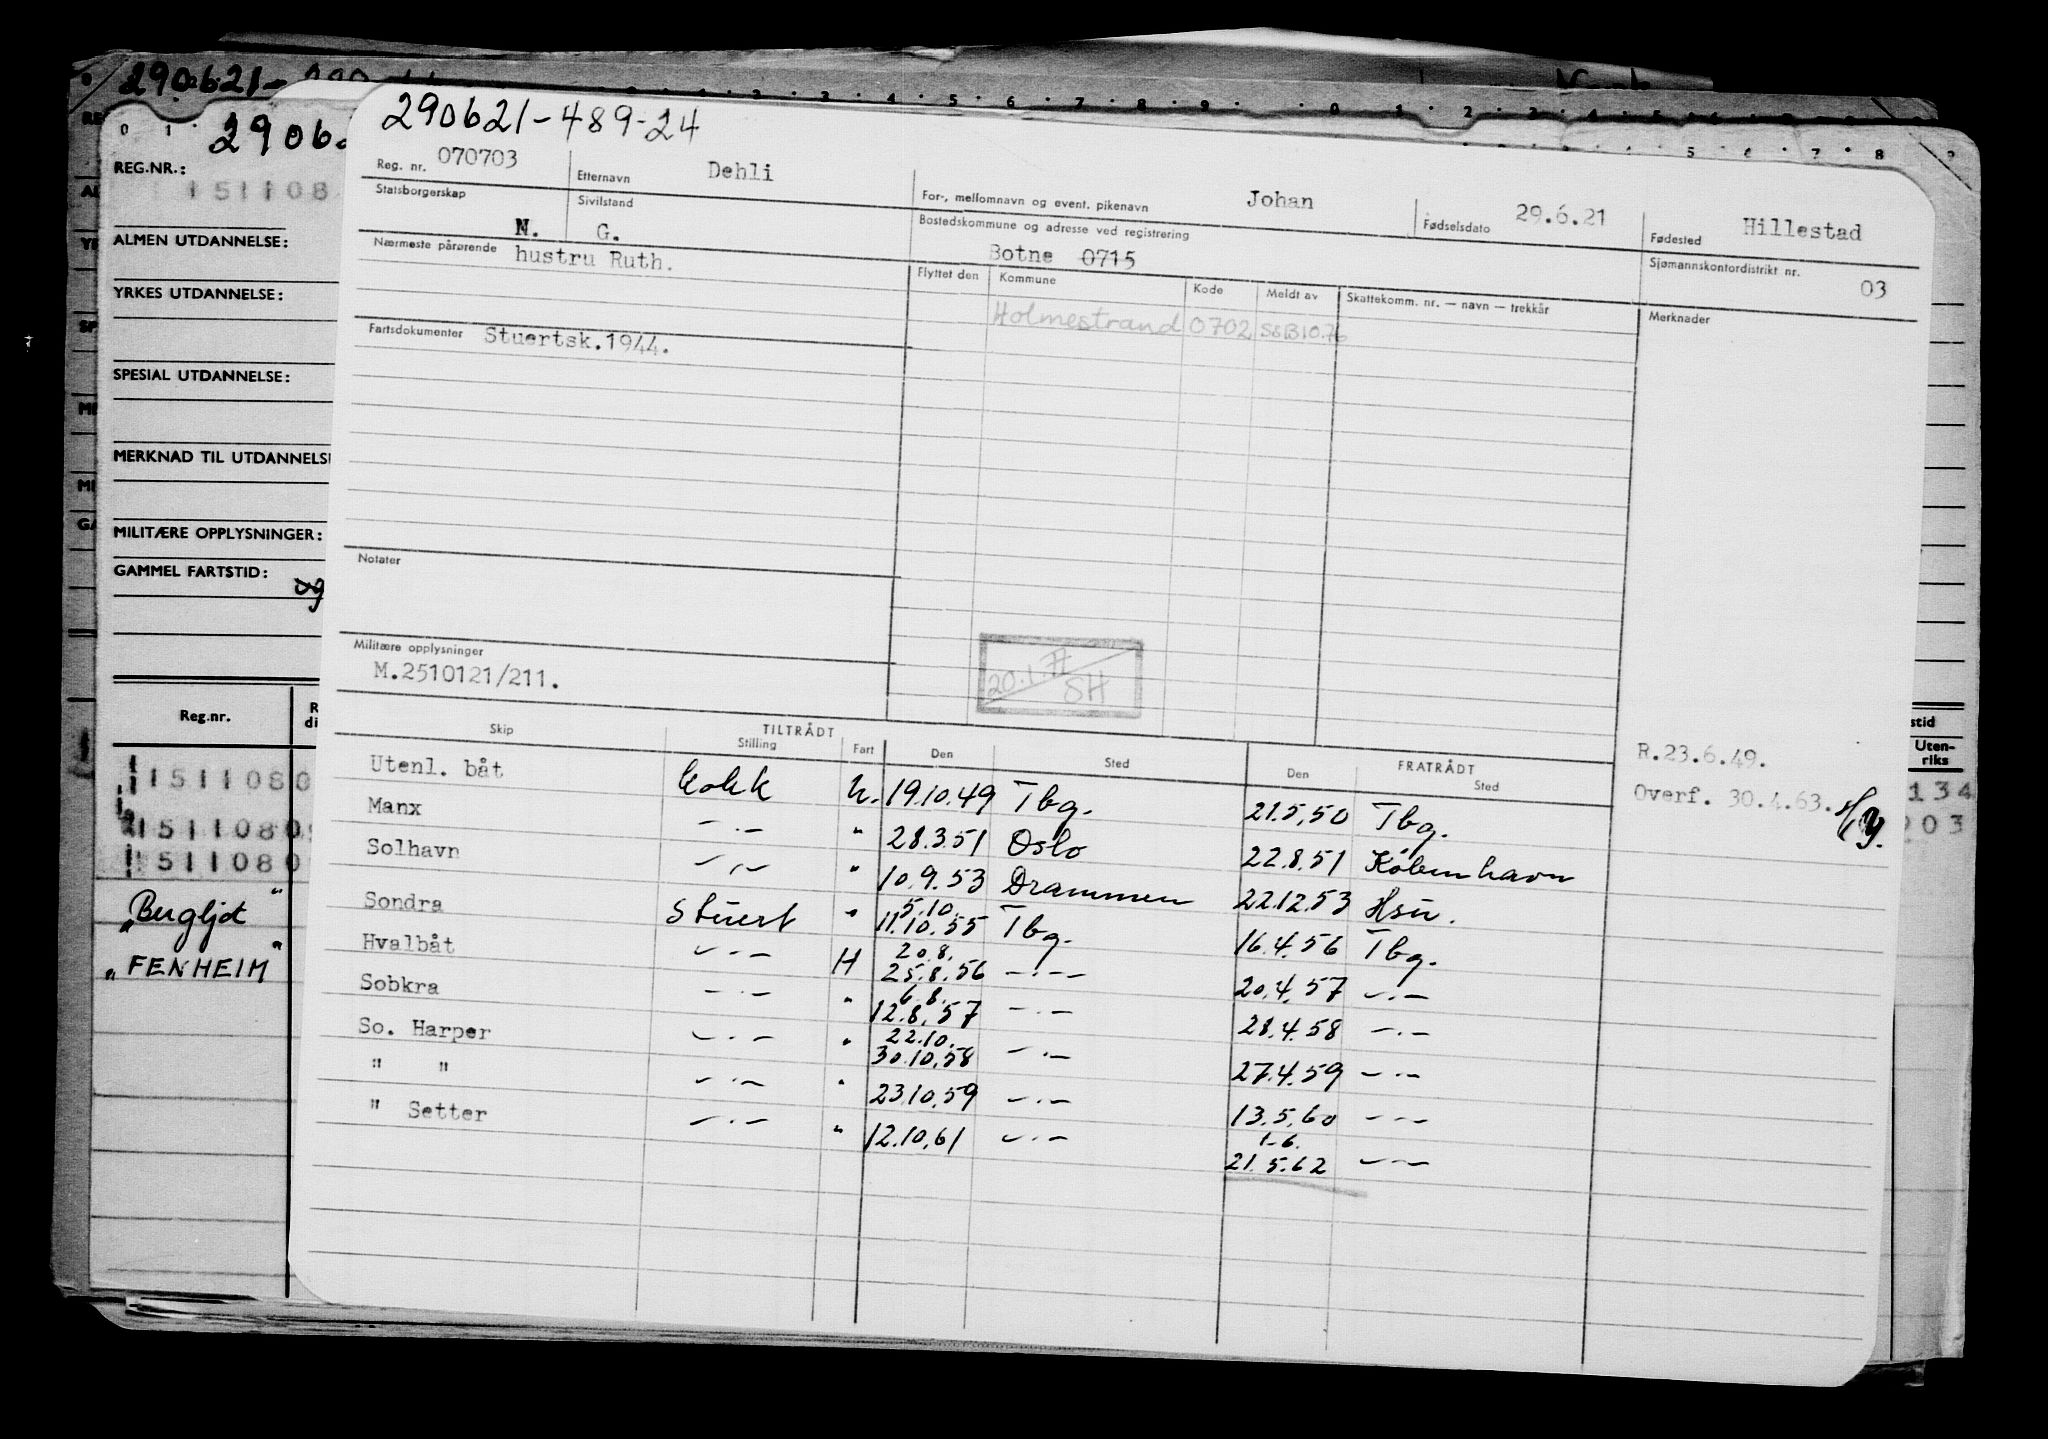 290621-
290621-489-24
0 1
4 . 5 . 6 . 7 . 8 . 9 . 0 . 1 . 2
5 . 6 . 7 . 8 9
REG.NR.:
151108
ALMEN UTDANNELSE:
YRKES UTDANNELSE:
SPESIAL UTDANNELSE:
MERKNAD TIL UTDANNELSE
MILITÆRE OPPLYSNINGER:
GAMMEL FARTSTID:
og
Reg.nr.
1511080
1511080
1511080
"Bergljot"
"FENHEIM"
stid
Uten-
riks
134
203
Reg. nr. 070703 Etternavn Dehli For-, mellomnavn og event. pikenavn Johan Fødselsdato 29.6.21 Fødested Hillestad
Statsborgerskap N. Sivilstand G. Bostedskommune og adresse ved registrering Botne 0715 Sjømannskontordistrikt nr. 03
Nærmeste pårørende hustru Ruth.
Flyttet den Kommune Kode Meldt av Skattekomm. nr. — navn — trekkår Merknader
Holmestrand 0702 SSB10.76
Fartsdokumenter Stuertsk.1944.
Notater
Militære opplysninger
M.2510121/211.
20.1.77
SH
R.23.6.49.
Overf. 30.4.63.
TILTRÅDT FRATRÅDT
Skip Stilling Fart Den Sted Den Sted
Utenl. båt Kokk U. 19.10.49 Tbg. 21.5.50 Tbg.
Manx -.- " 28.3.51 Oslo 22.8.51 København
Solhavn -.- " 10.9.53 Drammen 22.12.53 Hsu.
Sondra Stuert " 5.10. 11.10.55 Tbg. 16.4.56 Tbg.
Hvalbåt -.- H 20.8. 25.8.56 -.- 20.4.57 -.-
Sobkra -.- " 6.8. 12.8.57 -.- 28.4.58 -.-
So. Harper -.- " 22.10. 30.10.58 -.- 27.4.59 -.-
" " -.- " 23.10.59 -.- 13.5.60 -.-
" Setter -.- " 12.10.61 -.- 1-6. 21.5.62 -.-